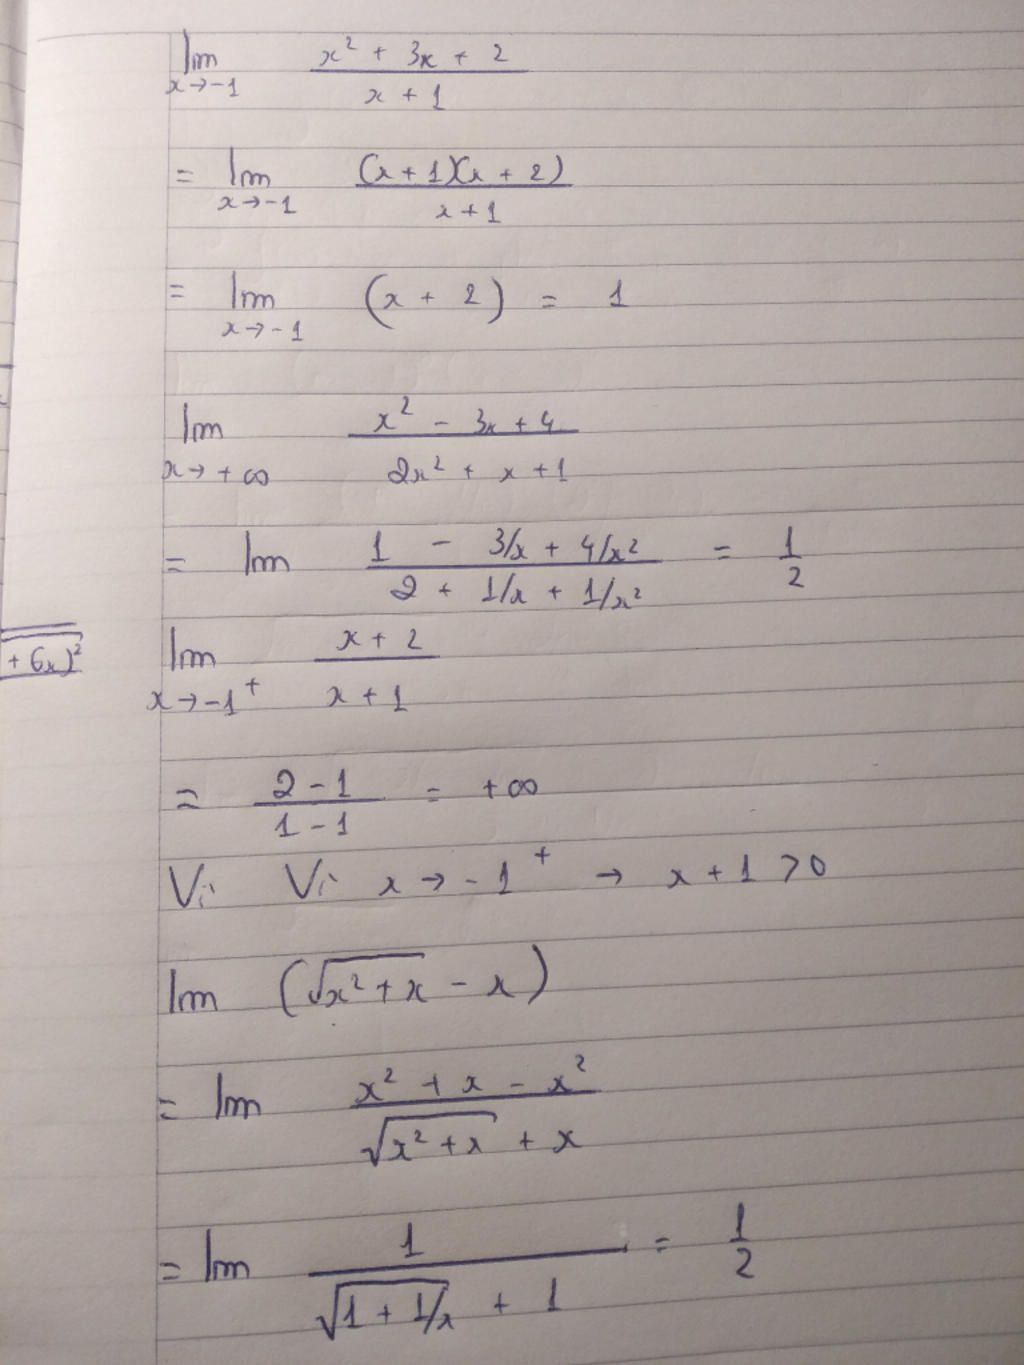 lim x→-1 (x² + 3x + 2)/(x + 1)
= lim x→-1 (x + 1)(x + 2)/(x + 1)
= lim x→-1 (x + 2) = 1
lim x→+∞ (x² - 3x + 4)/(2x² + x + 1)
= lim (1 - 3/x + 4/x²)/(2 + 1/x + 1/x²) = 1/2
+ 6x)²
lim x→-1⁺ (x + 2)/(x + 1)
= (2 - 1)/(1 - 1) = +∞
Vì Vì x → -1⁺ → x + 1 > 0
lim (√(x² + x) - x)
= lim (x² + x - x²)/(√(x² + x) + x)
= lim 1/(√(1 + 1/x) + 1) = 1/2